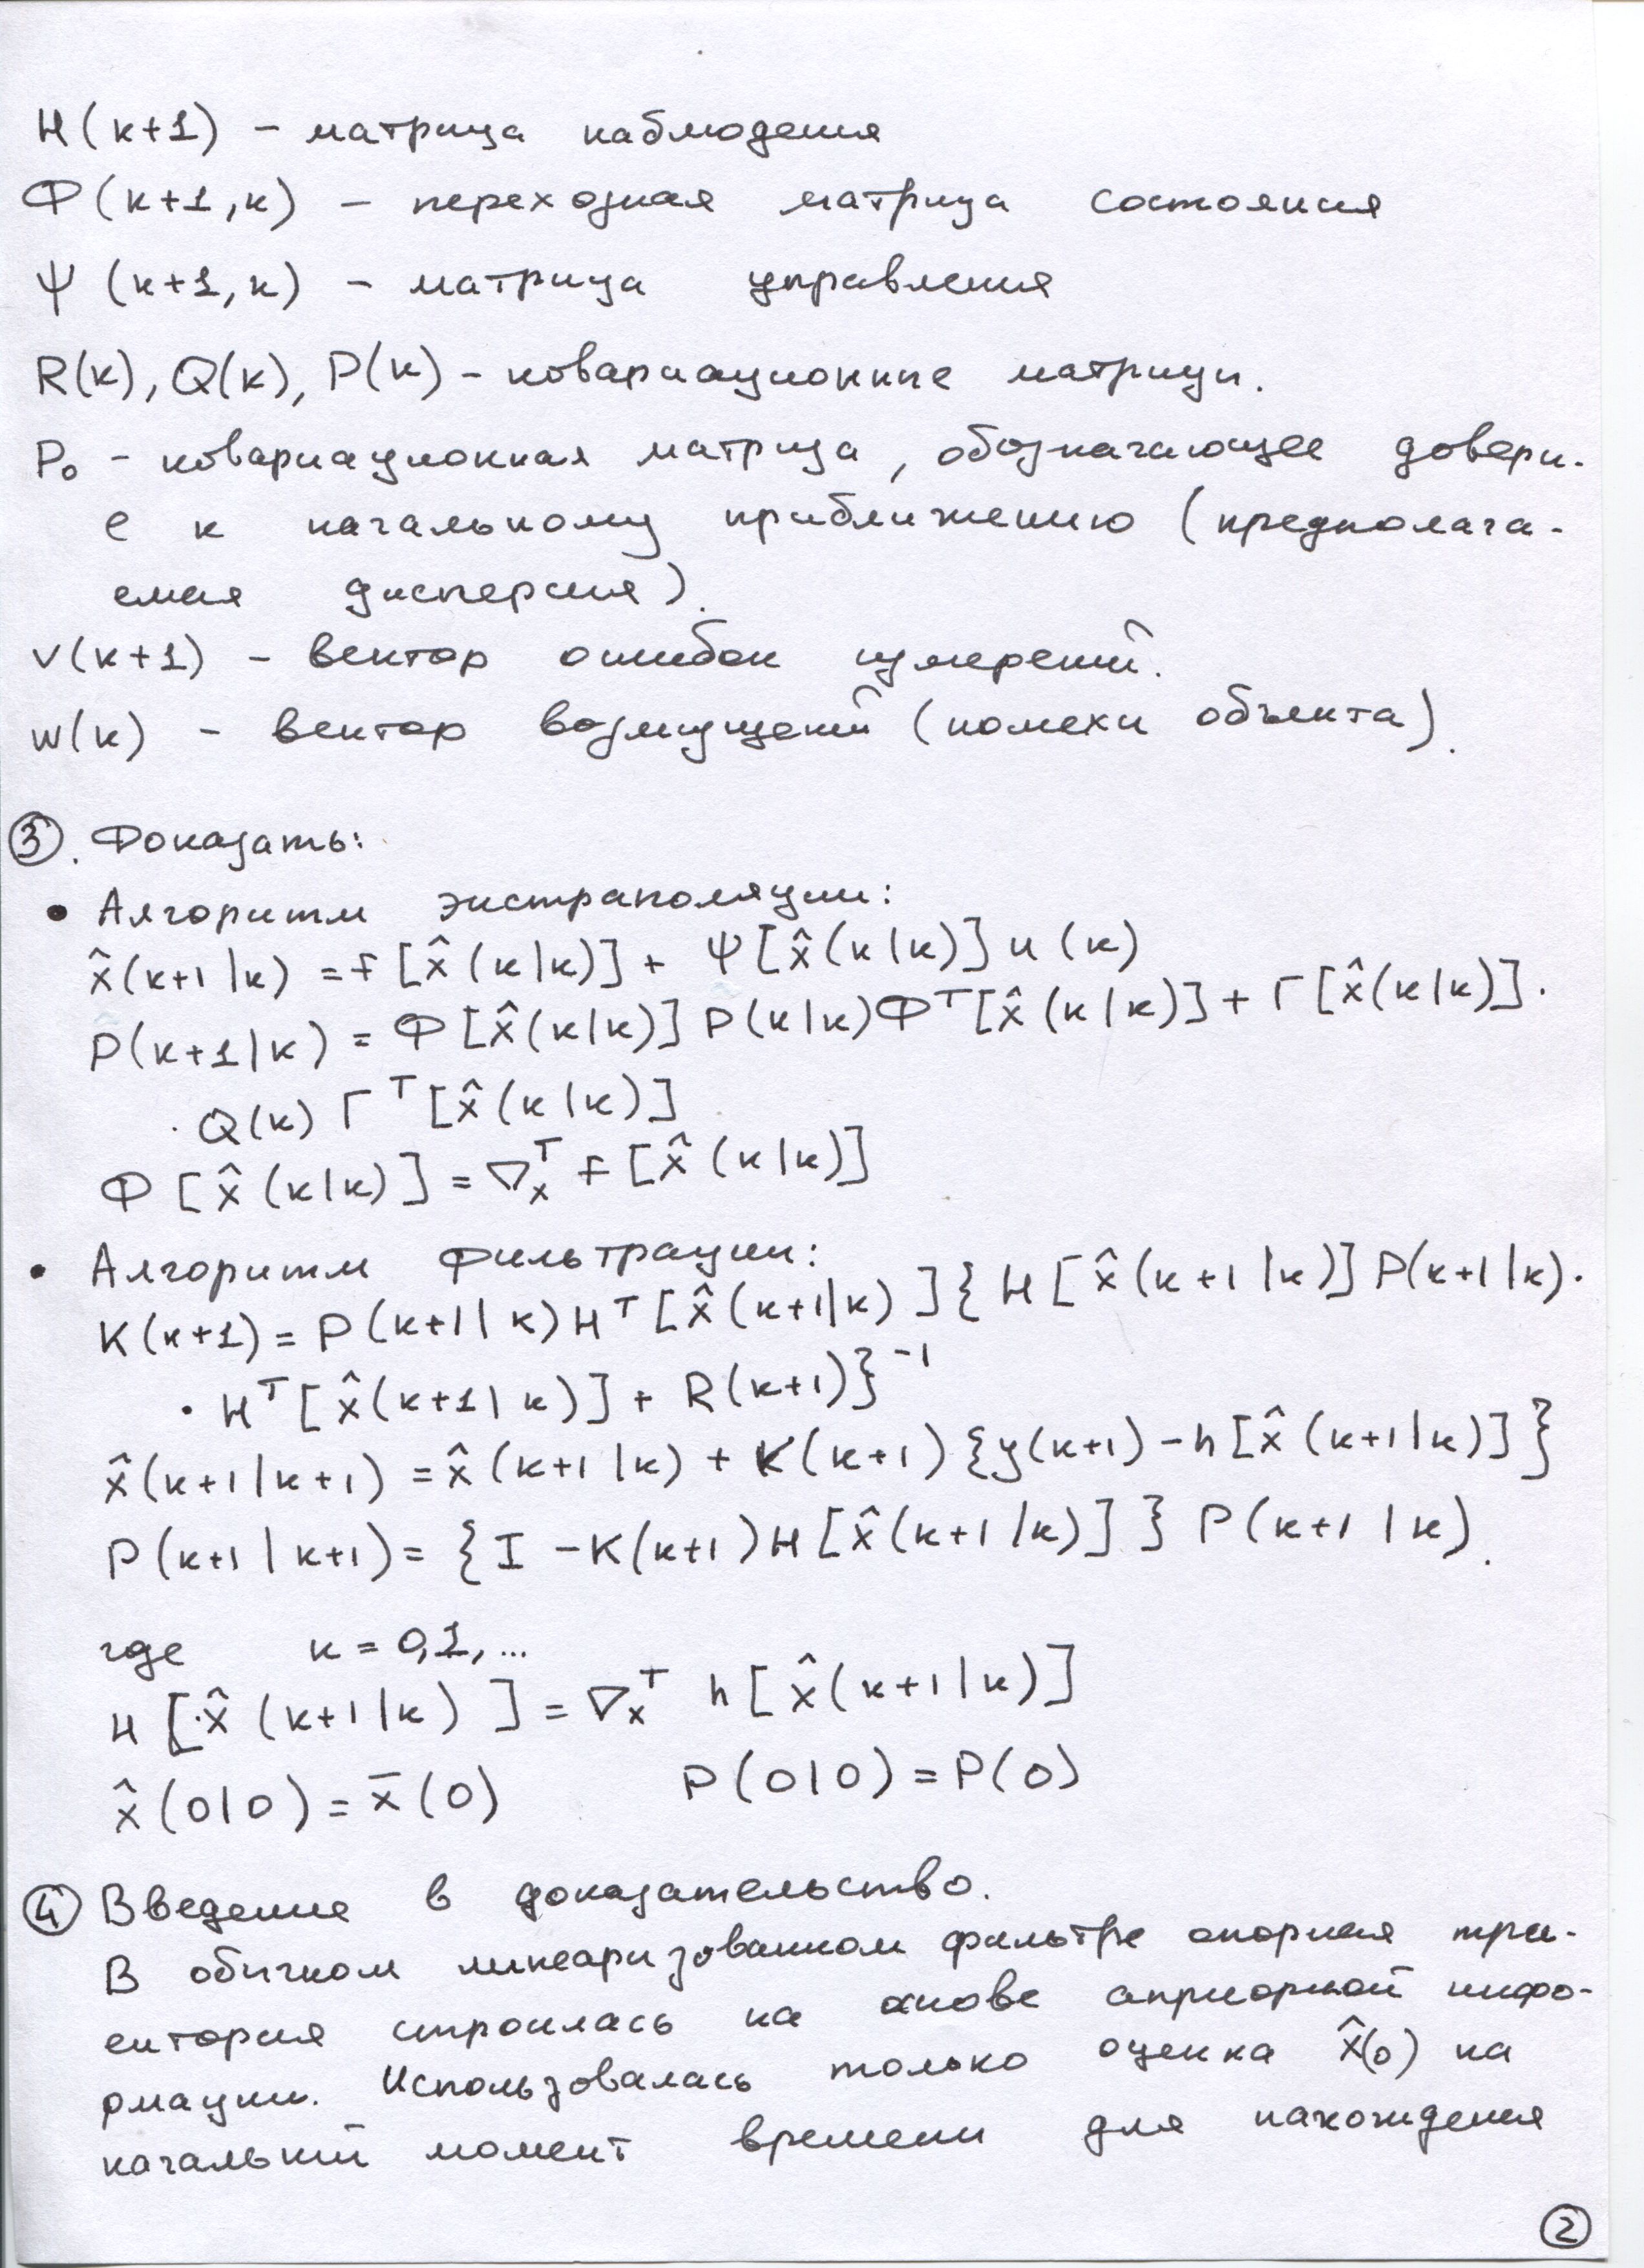 H(k+1) – матрица наблюдения
Ф(k+1,k) – переходная матрица состояния
Ψ(k+1,k) – матрица управления
R(k), Q(k), P(k) – ковариационные матрицы.
P₀ – ковариационная матрица, обозначающее довери-
е к начальному приближению (предполага-
емая дисперсия).
v(k+1) – вектор ошибок измерений.
w(k) – вектор возмущений (помехи объекта).
③. Доказать:
• Алгоритм экстраполяции:
x̂(k+1|k) = f[x̂(k|k)] + Ψ[x̂(k|k)]u(k)
P(k+1|k) = Ф[x̂(k|k)]P(k|k)Фᵀ[x̂(k|k)] + Γ[x̂(k|k)]·
·Q(k)Γᵀ[x̂(k|k)]
Ф[x̂(k|k)] = ∇ₓᵀ f[x̂(k|k)]
• Алгоритм фильтрации:
K(k+1) = P(k+1|k)Hᵀ[x̂(k+1|k)]{H[x̂(k+1|k)]P(k+1|k)·
·Hᵀ[x̂(k+1|k)] + R(k+1)}⁻¹
x̂(k+1|k+1) = x̂(k+1|k) + K(k+1){y(k+1) – h[x̂(k+1|k)]}
P(k+1|k+1) = {I – K(k+1)H[x̂(k+1|k)]}P(k+1|k).
где k = 0,1,...
H[x̂(k+1|k)] = ∇ₓᵀ h[x̂(k+1|k)]
x̂(0|0) = x̄(0) P(0|0) = P(0)
④ Введение в доказательство.
В обычном линеаризованном фильтре опорная тра-
ектория строилась на основе априорной инфо-
рмации. Использовалась только оценка x̂(0) на
начальный момент времени для нахождения
②